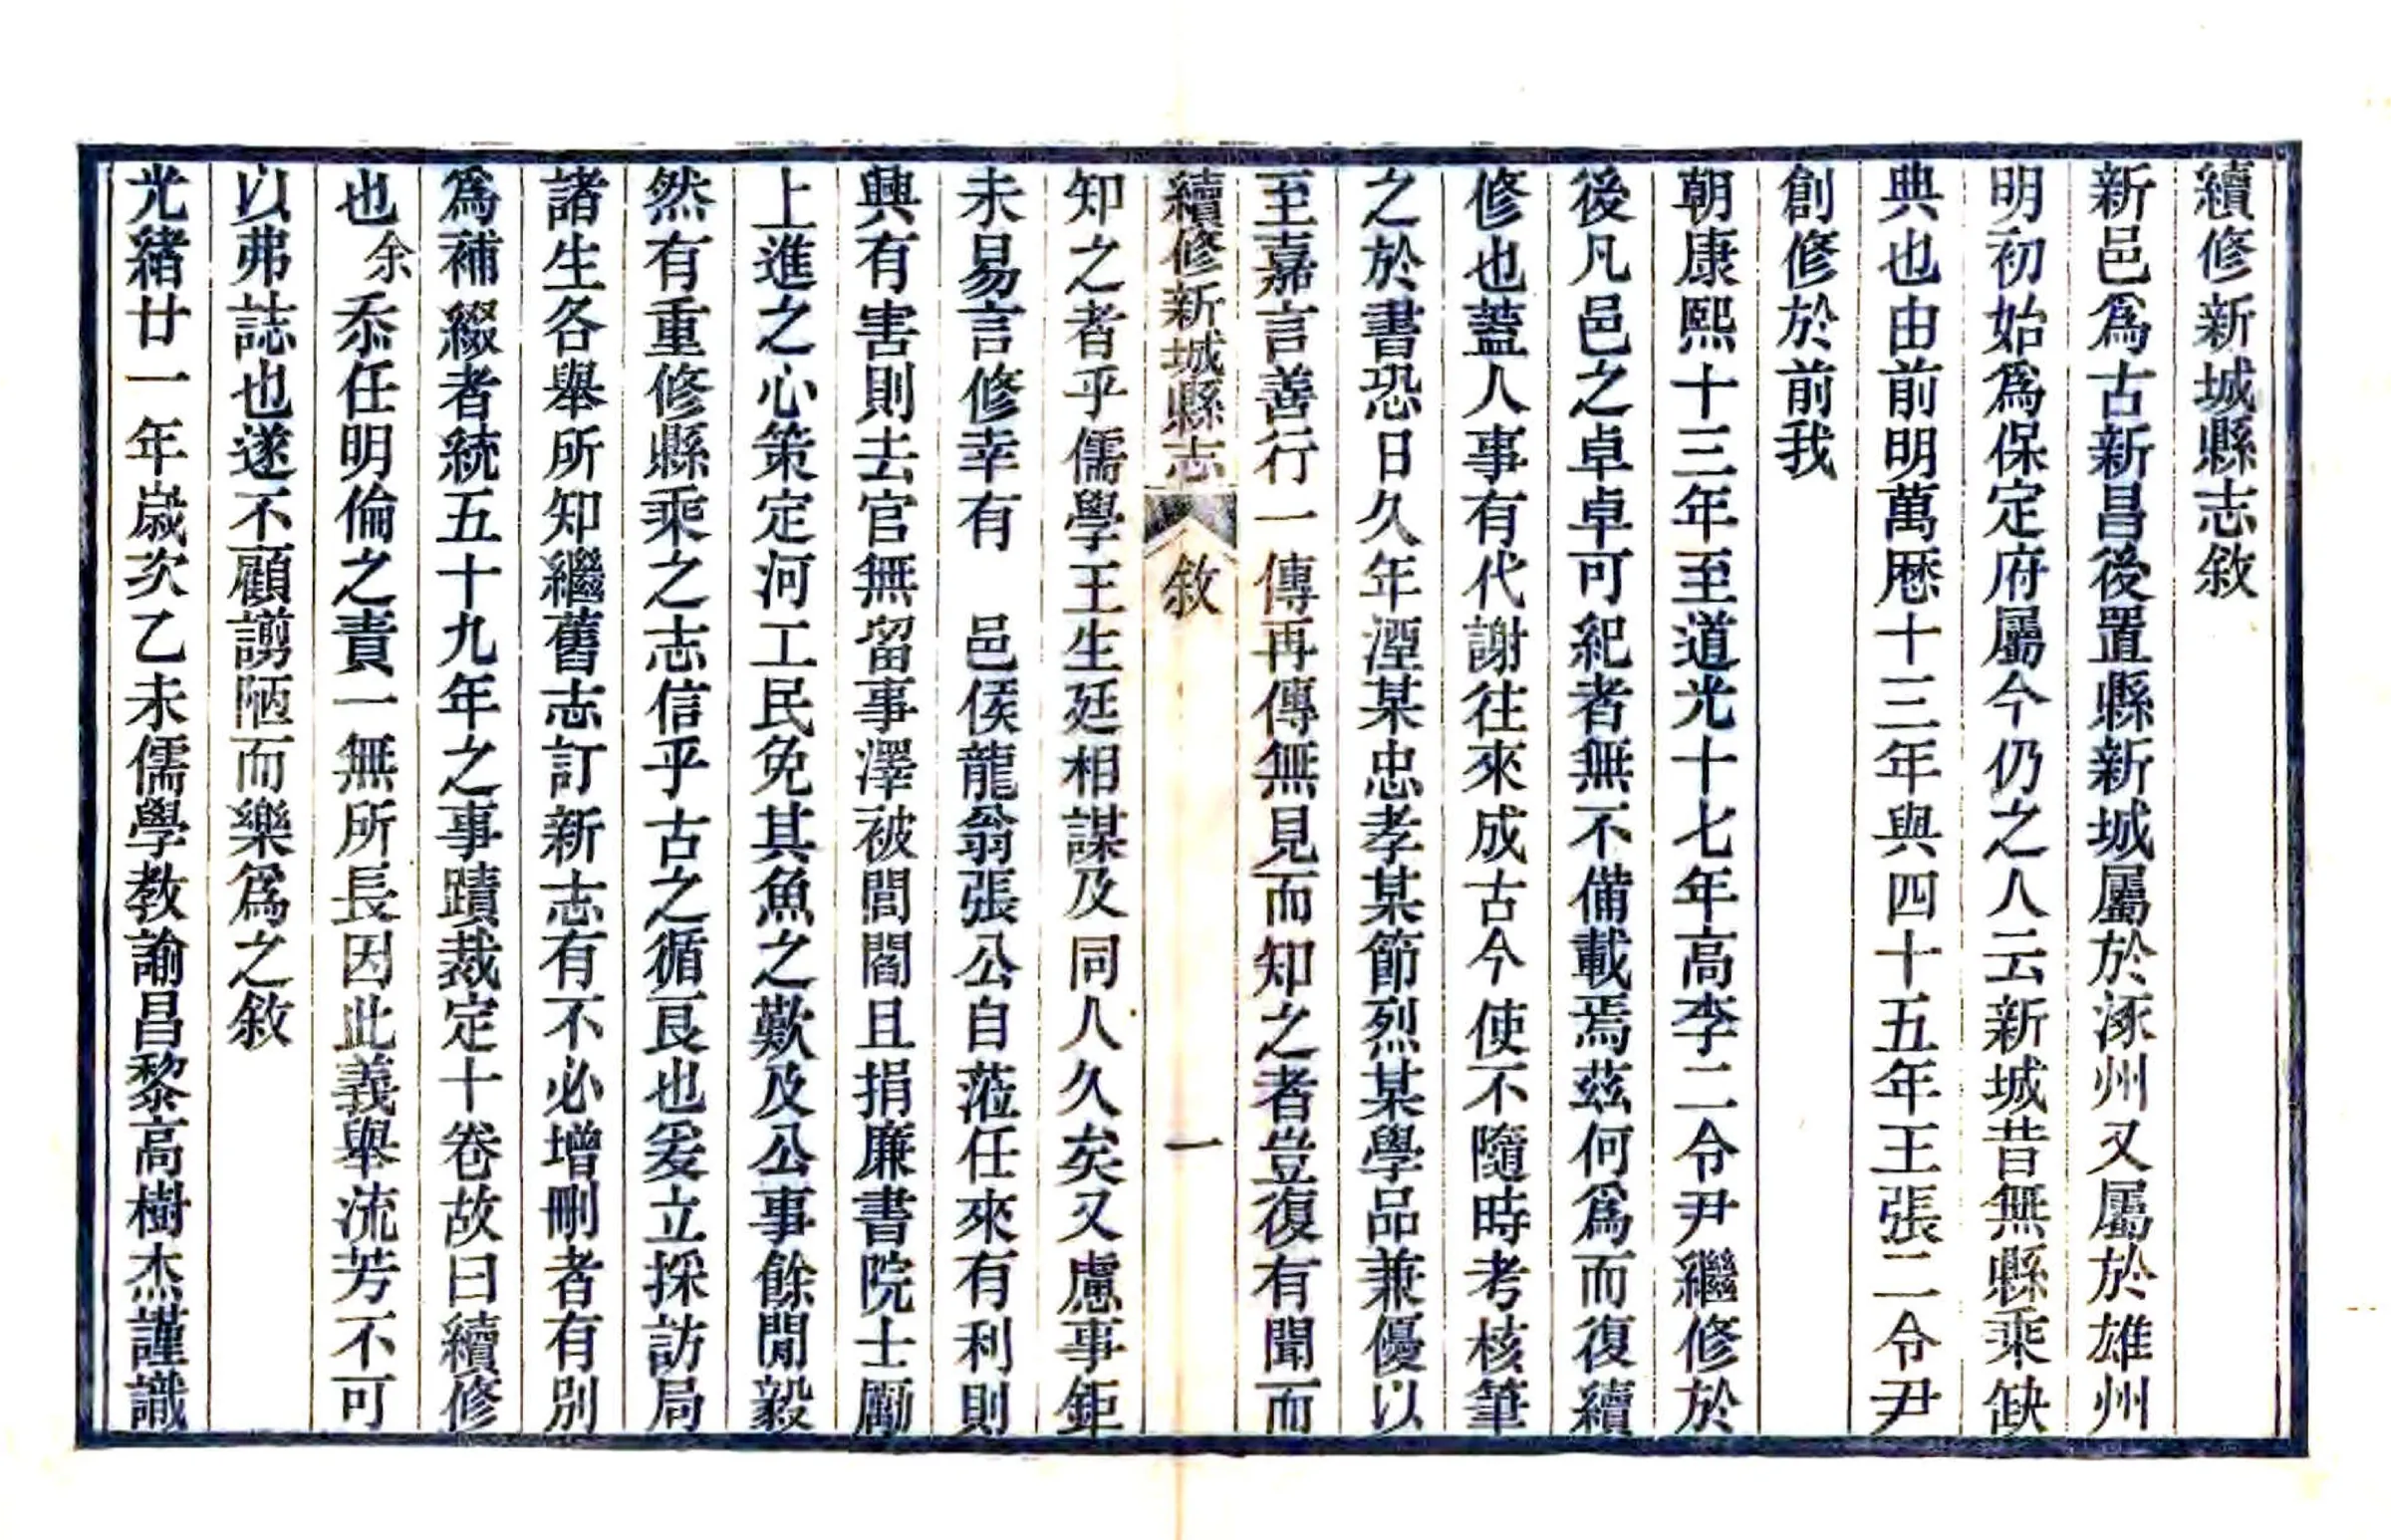 續修新城縣志敘
新邑爲古新昌後置縣新城屬於涿州又屬於雄州
明初始爲保定府屬今仍之人云新城昔無縣乘缺
典也由前明萬厯十三年與四十五年王張二令尹
創修於前我
朝康熙十三年至道光十七年高李二令尹繼修於
後凡邑之卓卓可紀者無不備載焉茲何爲而復續
修也蓋人事有代謝往來成古今使不隨時考核筆
之於書恐日久年湮某忠孝某節烈某學品兼優以
至嘉言善行一傳再傳無見而知之者豈復有聞而
續修新城縣志 敘 一
知之者乎儒學王生廷相謀及同人久矣又慮事鉅
未易言修幸有 邑侯龍翁張公自蒞任來有利則
興有害則去官無留事澤被閭閻且捐廉書院士勵
上進之心策定河工民免其魚之歎及公事餘閒毅
然有重修縣乘之志信乎古之循良也爰立採訪局
諸生各舉所知繼舊志訂新志有不必增刪者有別
爲補綴者統五十九年之事蹟裁定十卷故曰續修
也余忝任明倫之責一無所長因此義舉流芳不可
以弗誌也遂不顧謭陋而樂爲之敘
光緒廿一年嵗次乙未儒學教諭昌黎高樹杰謹識